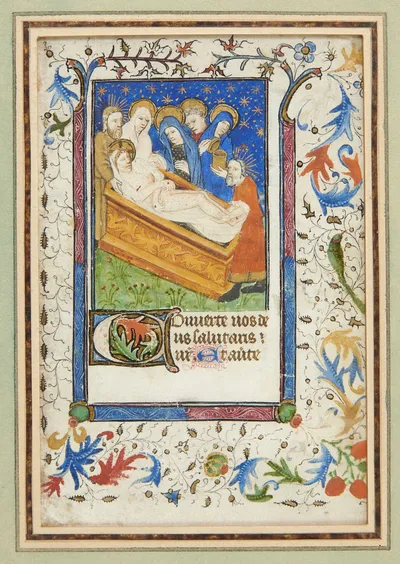 Conuerte nos de
us salutaris :
nr̄ Et aūte